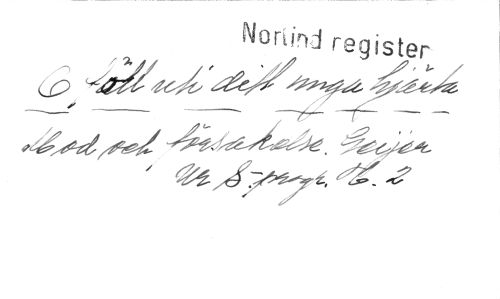 Norlind register
O, håll uti ditt unga hjärta
Mod och försakelse. Geijer
Ur S-progr. H. 2